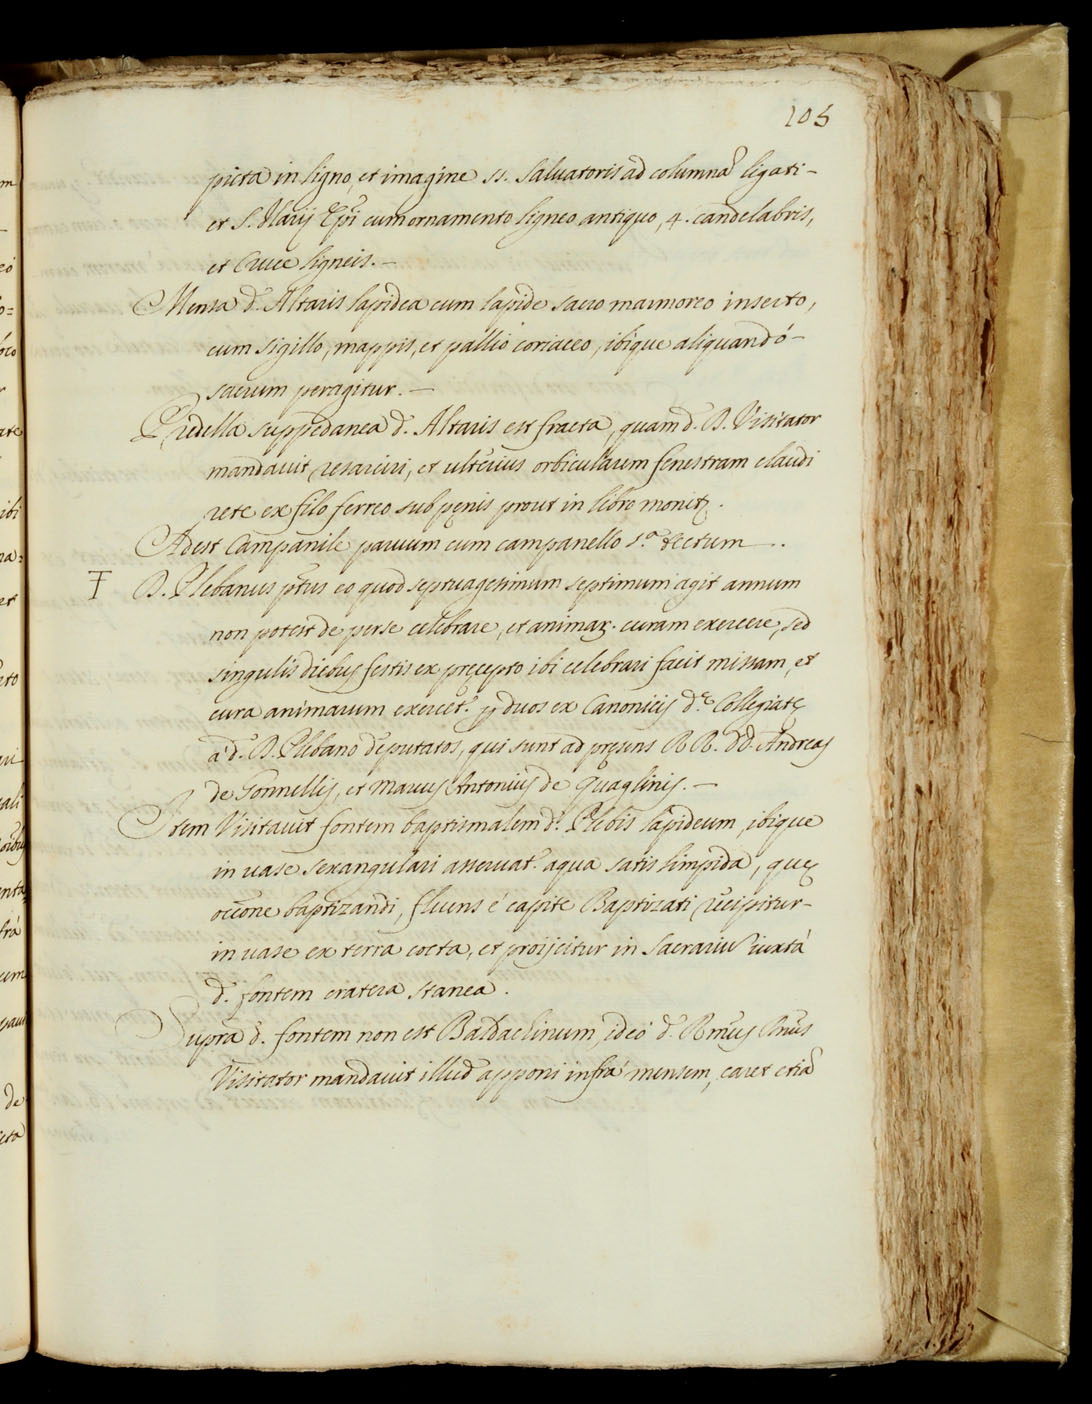 105
picta in ligno, et imagine SS. Saluatoris ad columnã ligati -
et S. Ilarij Ep̃i cum ornamento ligneo antiquo, 4. candelabris,
et Cruce ligneis. -
Mensa d. Altaris lapidea cum lapide sacro marmoreo inserto,
cum sigillo, mappis, et pallio coriaceo, ibique aliquandó -
sacrum peragitur. -
Predella suppedanea d. Altaris est fracta, quam d. D. Visitator
mandauit resarciri, et ulterius orbicularem fenestram claudi
rete ex filo ferreo sub pęnis prout in libro monitꝝ.
Adest Campanile paruum cum campanello s.ª tectum .
Ŧ D. Plebanus p̃tus eo quod septuagesimum septimum agit annum
non potest de per se celebrare, et animaꝝ. curam exercere, sed
singulis diebus festis ex pręcepto ibi celebrari facit missam, et
cura animarum exercet.ʳ p duos ex Canonicis d.ę Collegiatę
a d. D. Plebano deputatos, qui sunt ad pręsens RR. DD. Andreas
de Tonnellis, et Marcus Antonius de Quaglinis. -
Item Visitauit fontem baptismalem d. Plebis lapideum, ibique
in uase sexangulari asseruat.ʳ aqua satis limpida, quę
occ̃one baptizandi, fluens é capite Baptizati recipitur -
in uase ex terra cocta, et proijcitur in Sacrariũ iuxtá
d. fontem cratera stanea .
Supra d. fontem non est Baldachinum, ideó d. Rm̃us Dñus
Visitator mandauit illud apponi infrá mensem, caret etiã